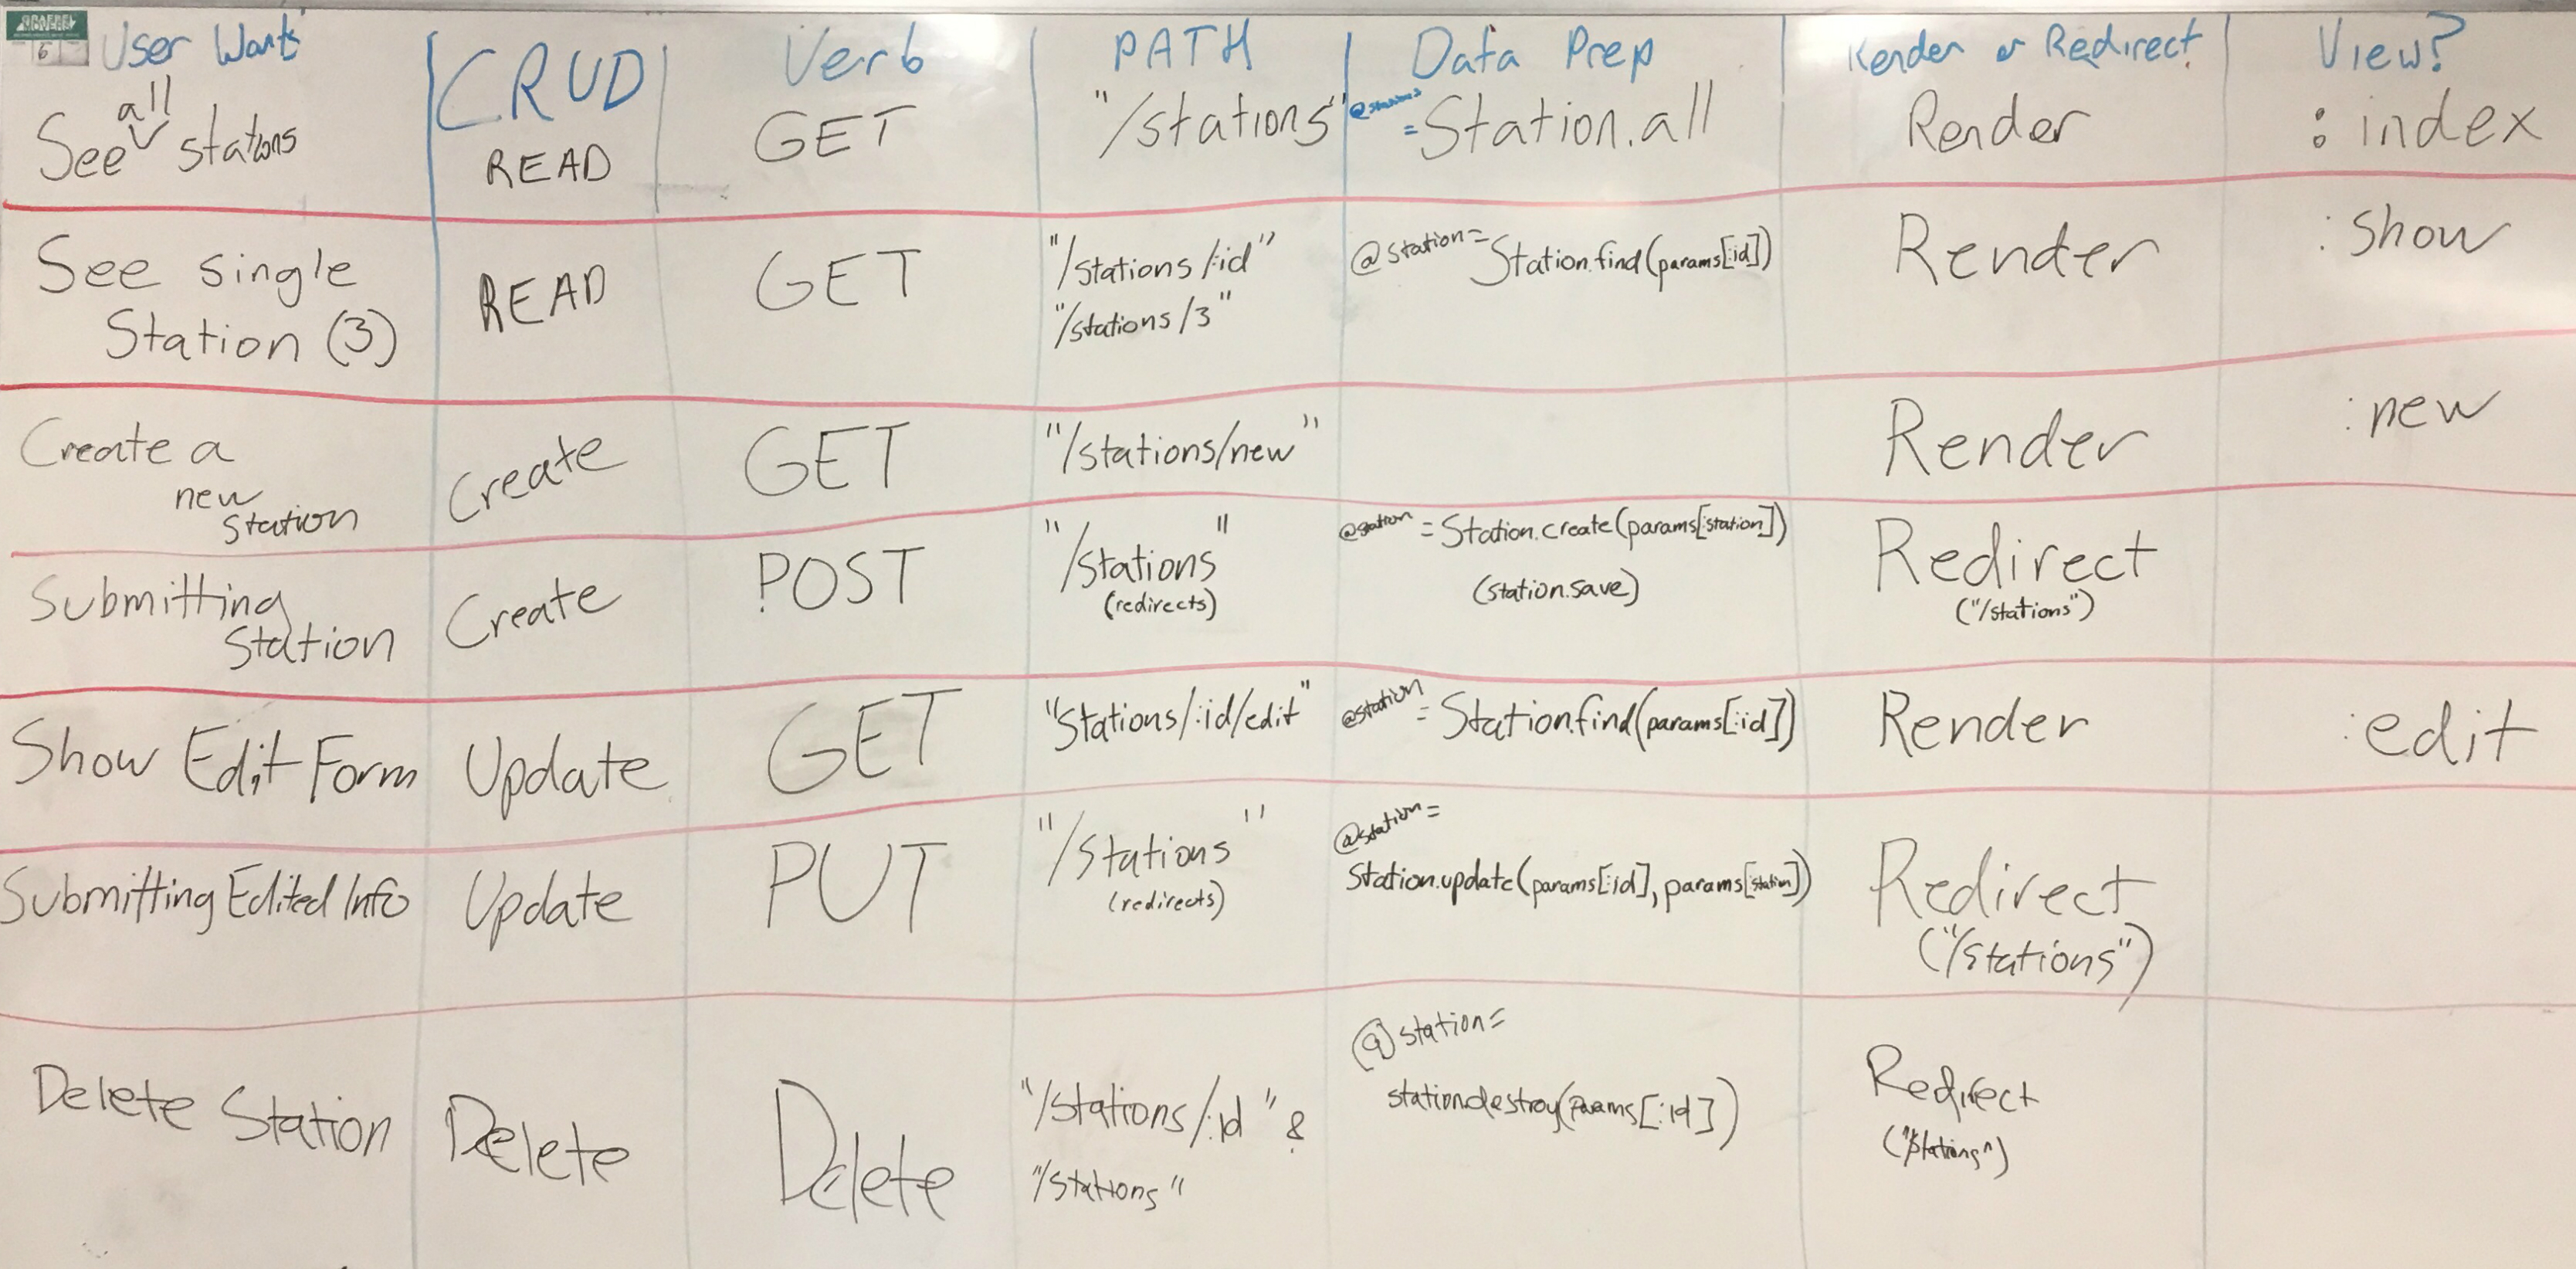 User Wants
CRUD
Verb
PATH
Data Prep
Render or Redirect
View?
See all stations
READ
GET
"/stations"
@stations
= Station.all
Render
:index
See single
Station (3)
READ
GET
"/stations/:id"
"/stations/3"
@station = Station.find(params[:id])
Render
:show
Create a
new
station
Create
GET
"/stations/new"
Render
:new
Submitting
Station
Create
POST
"/stations"
(redirects)
@station = Station.create(params[:station])
(station.save)
Redirect
("/stations")
Show Edit Form
Update
GET
"Stations/:id/edit"
@station = Station.find(params[:id])
Render
:edit
Submitting Edited Info
Update
PUT
"/stations"
(redirects)
@station =
Station.update(params[:id], params[station])
Redirect
("/stations")
Delete Station
Delete
Delete
"/stations/:id" &
"/stations"
@station =
station.destroy(params[:id])
Redirect
("/stations")
6